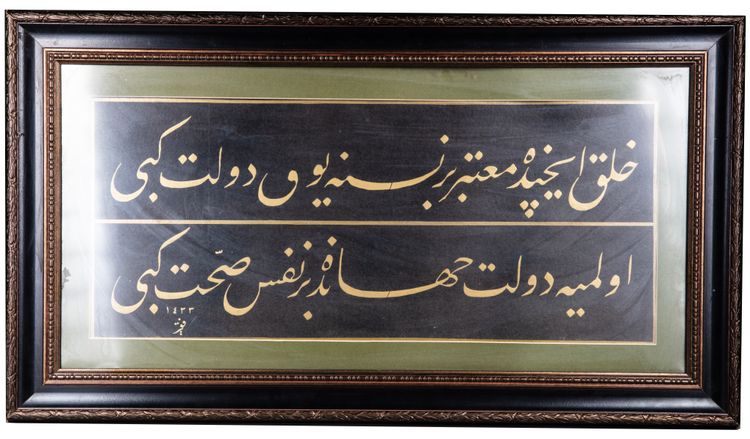 خلق ایچیده معتبر بر نسنه یوق دولت کبی
اولمیه دولت جهانده بر نفس صحّت کبی
١٤٢٣